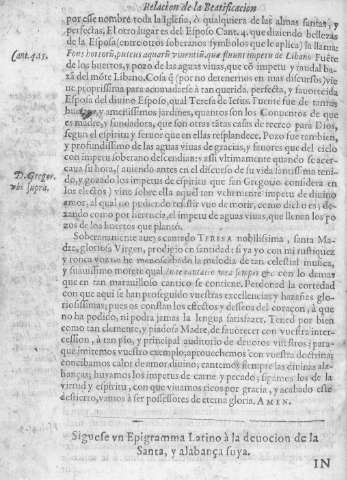 Relacion de la Beatificacion
por esse nombre toda la Iglesia, ò qualquiera de las almas santas, y
perfectas. El otro lugar es del Esposo Cant. 4. que diziendo bellezas
de la Esposa (entre otros soberanos symbolos que le aplica) la llama:
Cant. 4. 15.
Fons hortorũ, puteus aquarũ viuentiũ, quæ fluunt impetu de Libano. Fuẽte
de los huertos, y pozo de las aguas viuas, que cõ impetu y raudal ba-
xã del mõte Libano. Cosa q̃ (por no detenernos en mas discursos) vie-
ne propriissima para acomodarse à tan querida, perfecta, y fauorecida
Esposa del diuino Esposo, qual Teresa de Iesus. Fuente fue de tantos
huertos, y amenissimos jardines, quantos son los Conuentos de que
es madre, y fundadora, que son otras tãtas casas de recreo para Dios,
segun el espiritu y feruor que en ellas resplandece. Pozo fue tambien,
y profundissimo de las aguas viuas de gracias, y fauores que del cielo
con impetu soberano descendian: assi vltimamente quando se acer-
caua su hora, (auiendo antes en el discurso de su vida santissima teni-
D. Gregor.
do, y gozado los impetus de espiritu que san Gregorio considera en
vbi supra.
los electos) vino sobre ella aquel tan vehemente impetu de diuino
amor, al qual no pudiendo resistir vuo de morir, como dicho es; de-
xando como por herencia, el impetu de aguas viuas, que llenan los po
zos de los huertos que plantò.
Soberanamente aueys cantado TERESA nobilissima, santa Ma-
dre, gloriosa Virgen, prodigio en santidad: si ya yo con mi rustiquez
y ronca voz no he menoscabado la melodia de tan celestial musica,
y suauissimo motete con lo demas
que en tan marauilloso cantico se contiene. Perdonad la cortedad
con que aqui se han proseguido vuestras excellencias y hazañas glo-
riosissimas; pues os constan los effectos y desseos del coraçon, à que
no ha podido, ni podra jamas la lengua satisfazer. Tened por bien
como tan clemente, y piadosa Madre, de fauorecer con vuestra inter-
cession, à tan pio, y principal auditorio de deuotos vuestros; para
que imitemos vuestro exemplo, aprouechemos con vuestra doctrina;
concibamos calor de amor diuino; cantemos siempre las diuinas ala-
banças; huyamos los impetus de carne y pecado; sigamos los de la
virtud y espiritu, con que viuamos ricos por gracia, y acabado este
destierro, vamos à ser possessores de eterna gloria. AMEN.
Siguese vn Epigramma Latino à la deuocion de la
Santa, y alabança suya.
IN